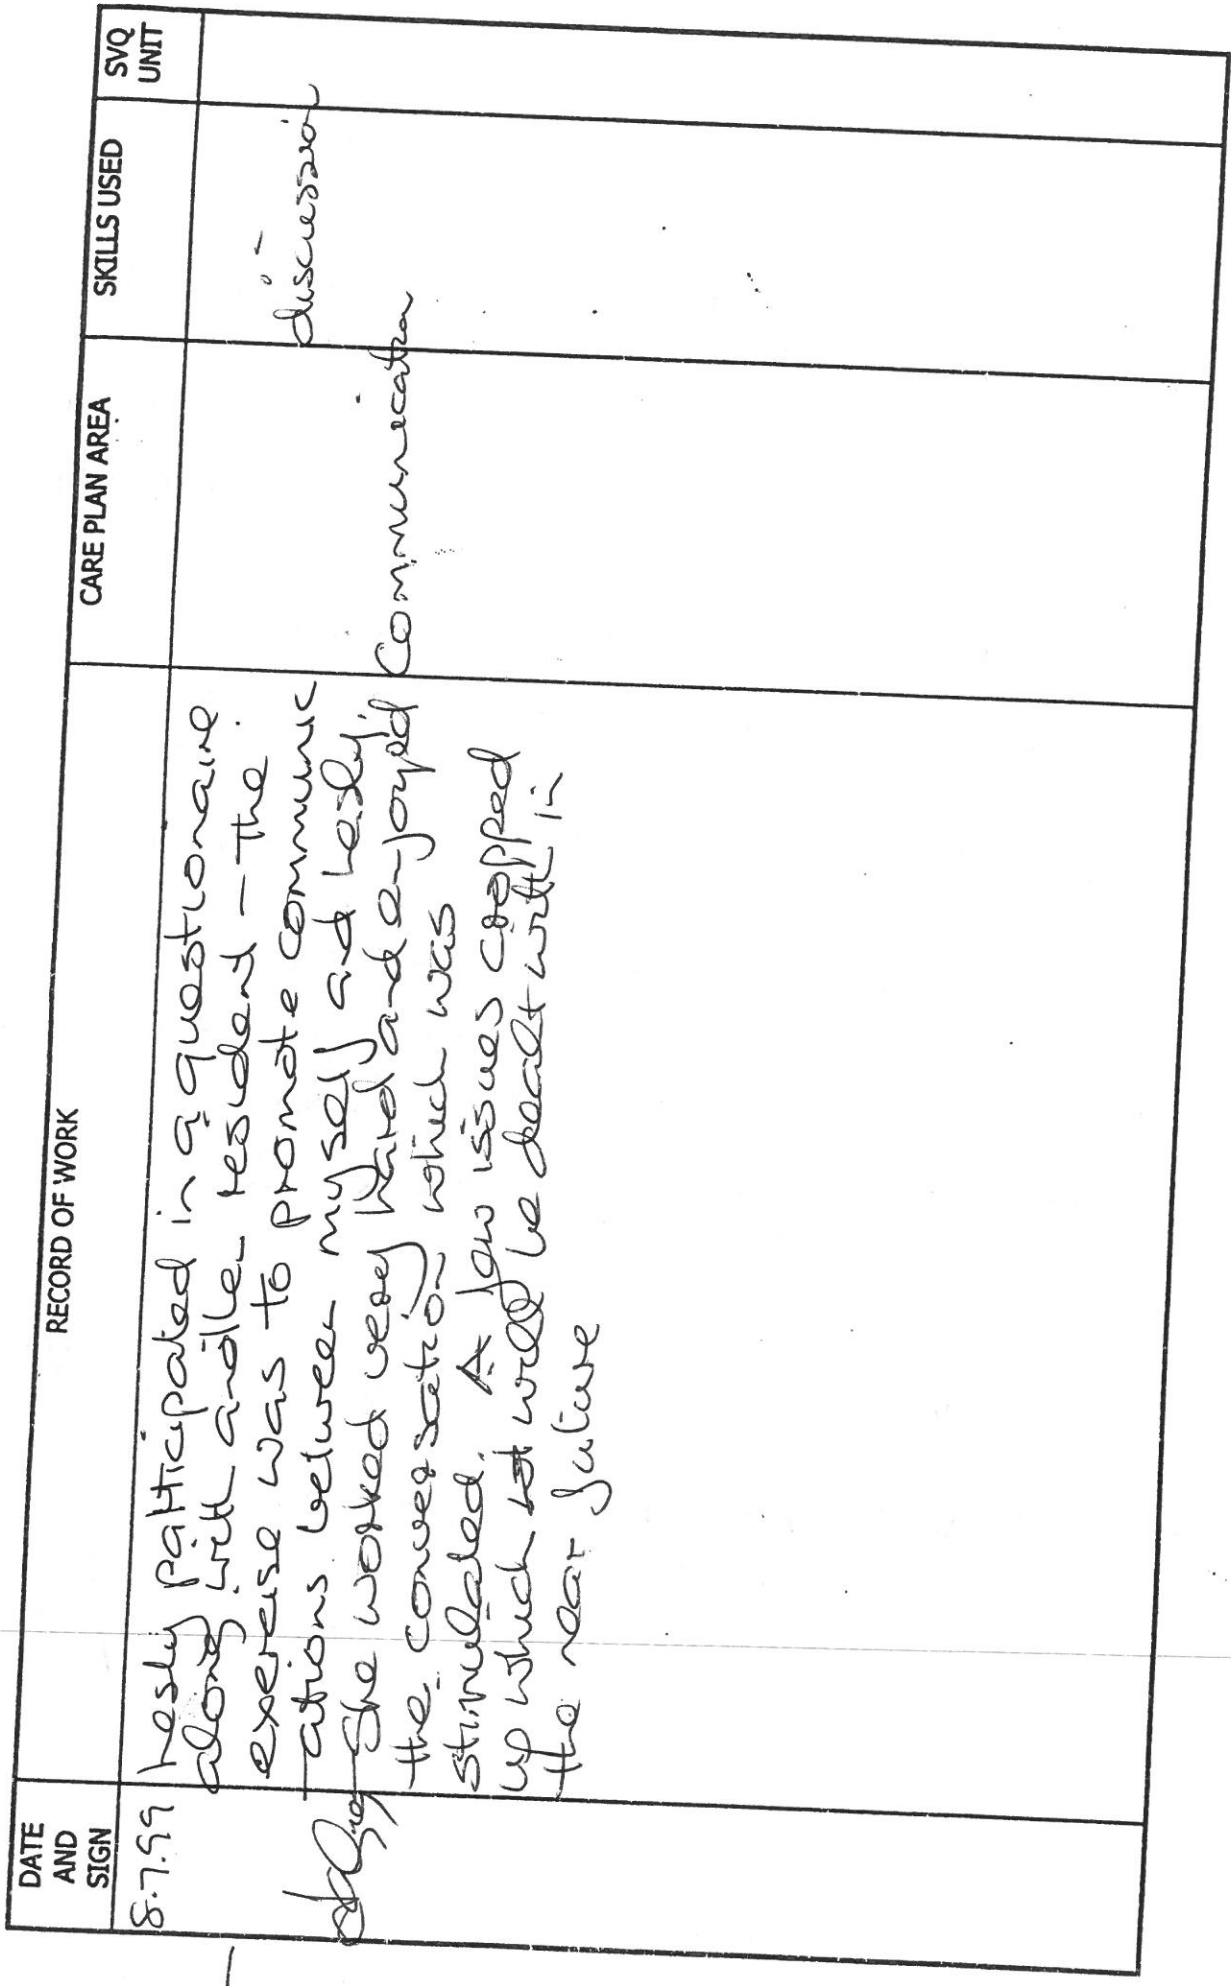 DATE AND SIGN
RECORD OF WORK
CARE PLAN AREA
SKILLS USED
SVQ UNIT
8.7.99
Lesly participated in a questionaire
along with another resident - The
exercise was to promote communic
ations between myself and Lesly.
She worked very hard and enjoyed
the conversation which was
stimulated. A few issues cropped
up which will be dealt with in
the near future
Communication
discussion